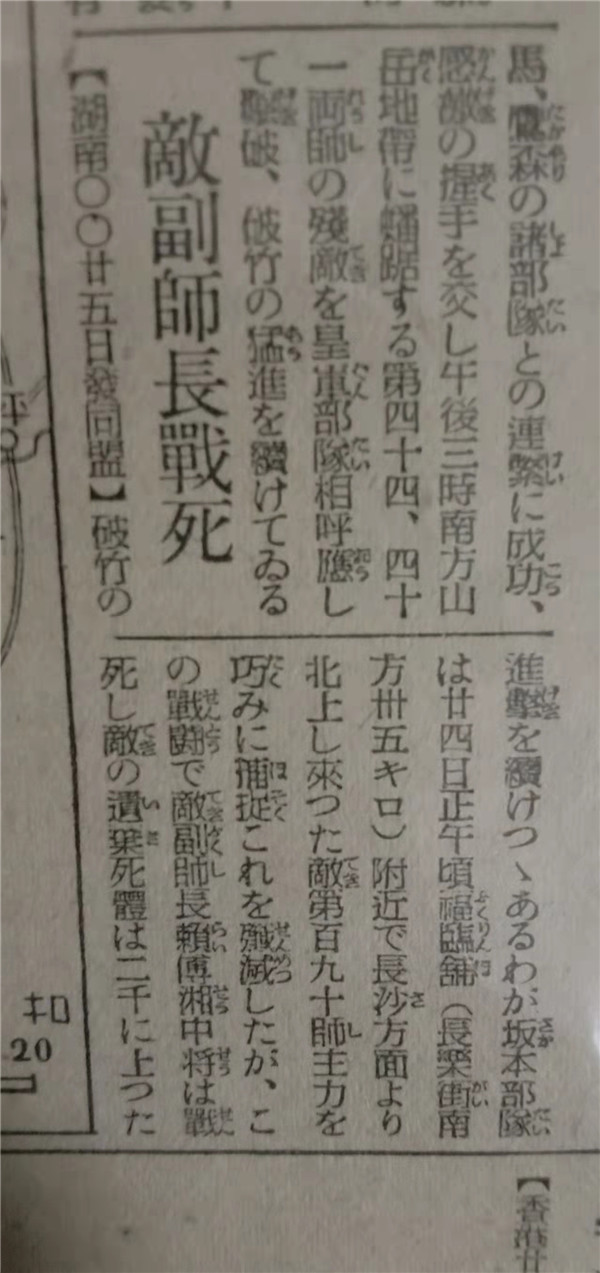 馬、鷹森の諸部隊との連繫に成功、
感激の握手を交し午後三時南方山
岳地帶に蟠踞する第四十四、四十
一両師の殘敵を皇軍部隊相呼應し
て擊破、破竹の猛進を續けてゐる
敵副師長戰死
【湖南〇〇廿五日發同盟】破竹の
進擊を續けつゝあるわが坂本部隊
は廿四日正午頃福臨舖（長樂街南
方卅五キロ）附近で長沙方面より
北上し來つた敵第百九十師主力を
巧みに捕捉これを殲滅したが、こ
の戰鬪で敵副師長賴傅湘中将は戰
死し敵の遺棄死體は二千に上つた
【香港廿
坪
20